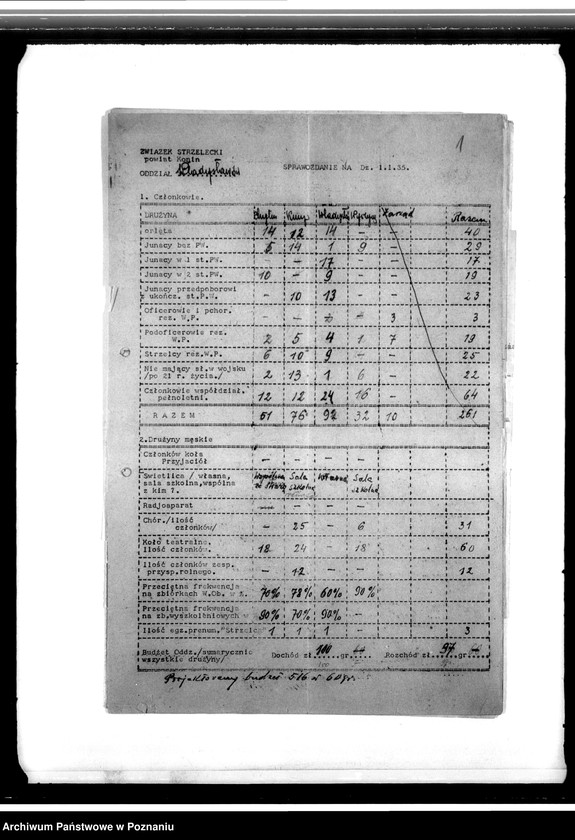 1
ZWIĄZEK STRZELECKI
powiat Konin
ODDZIAŁ Władysławów
SPRAWOZDANIE NA Dz. 1.1.35.
1. Członkowie.
DRUŻYNA Zarząd Razem
orlęta 14 12 14 – – 40
Junacy bez PW. 5 14 1 9 29
Junacy w 1 st.PW. – – 17 – – 17
Junacy w 2 st.PW. 10 – 9 – – 19
Junacy przedpoborowi
z ukończ. st.P.W. – 10 13 – – 23
Oficerowie i pchor.
rez. W.P. – – – 3 3
Podoficerowie rez.
W.P. 2 5 4 1 7 19
Strzelcy rez.W.P. 6 10 9 – – 25
Nie mający sł.w wojsku
/po 21 r. życia./ 2 13 1 6 – 22
Członkowie współdział.
pełnoletni. 12 12 24 16 – 64
R A Z E M 51 76 92 32 10 261
2.Drużyny męskie
Członków koła
Przyjaciół – – – –
Świetlica / własna,
sala szkolna,wspólna
z kim ?. Wspólna Sala szkolna Własna Sala szkolna
Radjoaparat – – – –
Chór./ilość
członków/ – 25 – 6 31
Koło teatralne.
ilość członków. 18 24 – 18 60
Ilość członków zesp.
przysp.rolnego. – 12 – – 12
Przeciętna frekwencja
na zbiórkach W.Ob. w %. 70% 78% 60% 90%
Przeciętna frekwencja
na zb.wyszkoleniowych w 90% 70% 90% –
Ilość egz.prenum."Strzelec" 1 1 1 – 3
Budżet Oddz./sumarycznie
wszystkie drużyny/ Dochód zł 100 gr – Rozchód zł 97 gr –
Projektowany budżet 516 zł 60 gr.
Archiwum Państwowe w Poznaniu